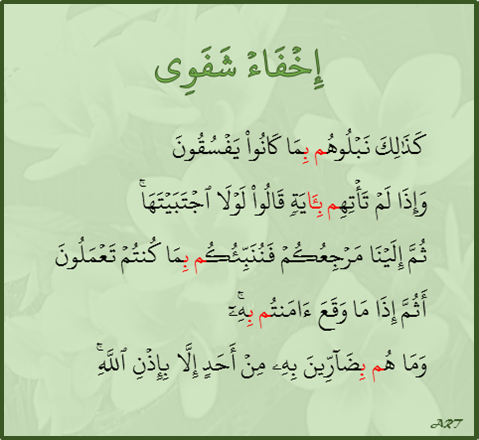 إِخْفَاءْ شَفَوِى
كَذَٰلِكَ نَبْلُوهُم بِمَا كَانُوا۟ يَفْسُقُونَ
وَإِذَا لَمْ تَأْتِهِم بِـَٔايَةٍۢ قَالُوا۟ لَوْلَا ٱجْتَبَيْتَهَا ۚ
ثُمَّ إِلَيْنَا مَرْجِعُكُمْ فَنُنَبِّئُكُم بِمَا كُنتُمْ تَعْمَلُونَ
أَثُمَّ إِذَا مَا وَقَعَ ءَامَنتُم بِهِۦٓ ۚ
وَمَا هُم بِضَآرِّينَ بِهِۦ مِنْ أَحَدٍ إِلَّا بِإِذْنِ ٱللَّهِ ۚ
ART